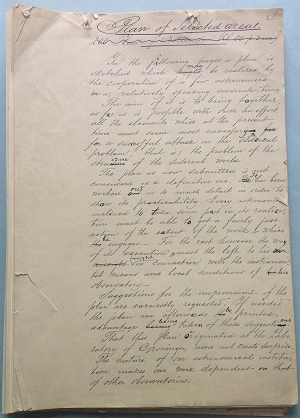 Plan of Selected areas
In the following pages a plan is
sketched which might be realized by
the cooperation of a few astronomers
in a, relatively speaking, moderate time.
The aim of it is to bring together
as far as is possible with such an effort
all the elements which at the present
time must seem most necessary
for a successful attack on the sidereal
problem, that is: the problem of the
structure of the sidereal world.
The plan as now submitted I
consider as a definitive one. It has been
worked out in so much detail in order to
show its practicability. Every astronomer
inclined to take some part in its realiza-
tion must be able to get a fairly just
notion of the extent of the work to which
he engages. For the rest however the
of its execution must be left to his
in connection with the instrumen-
tal means and local conditions of his
observatory.
Suggestions for the improvement of the
plan are earnestly requested. If needed
the plan can afterwards be printed,
advantage being taken of these suggestions.
That this plan originated at the Labo-
ratory of Groningen need not create surprise.
The nature of our astronomical institu-
tion makes our work dependent on that
of other observatories.